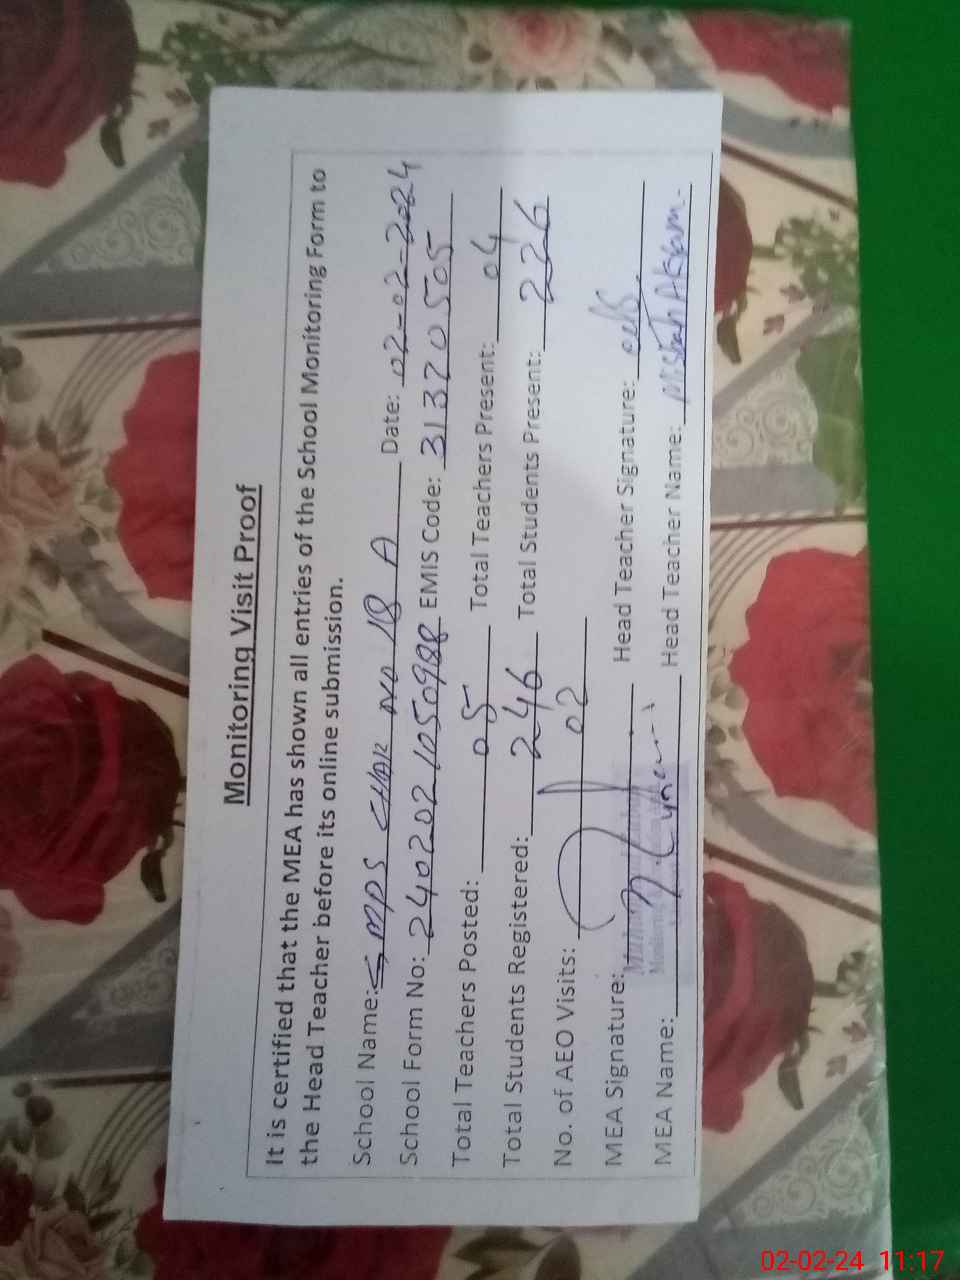 Monitoring Visit Proof
It is certified that the MEA has shown all entries of the School Monitoring Form to
the Head Teacher before its online submission.
School Name: GMPS CHAK NO 18 A Date: 02-02-2024
School Form No: 2402021050988 EMIS Code: 31320505
Total Teachers Posted: 05 Total Teachers Present: 04
Total Students Registered: 246 Total Students Present: 226
No. of AEO Visits: 02
MEA Signature: Head Teacher Signature:
MEA Name: Head Teacher Name: Misbah Akram.
02-02-24 11:17